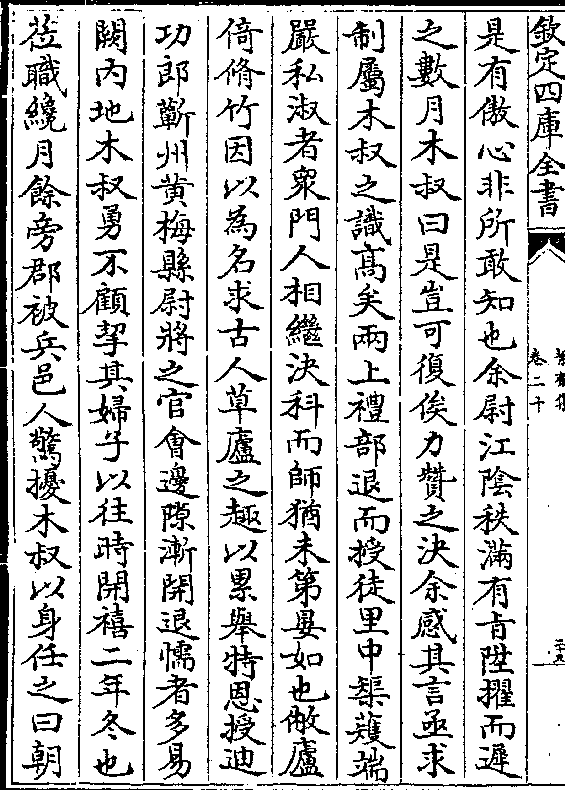 欽定四庫全書
卷二十
是有傲心非所敢知也余尉江陰秩滿有旨陞擢而遲
之數月木叔曰是豈可復俟力贊之決余感其言亟求
制屬木叔之識髙矣兩上禮部退而授徒里中榘矱端
嚴私淑者衆門人相繼決科而師猶未第晏如也敝廬
倚脩竹因以為名求古人草廬之趣以累舉特恩授迪
功郎蘄州黄梅縣尉將之官會邊隙漸開退懦者多易
闕内地木叔勇不顧挈其婦子以往時開禧二年冬也
莅職纔月餘旁郡被兵邑人驚擾木叔以身任之曰朝